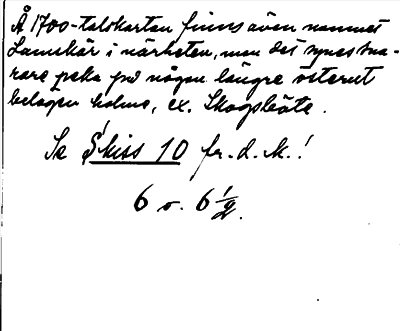 Å 1700-talskartan finns även namnet
Lamskär i närheten, men det synes sna-
rare peka på någon längre österut
belägen holme, ex. Skogsböte.
Se Skiss 10 fr. d. M.!
6 o. 6 1/2.